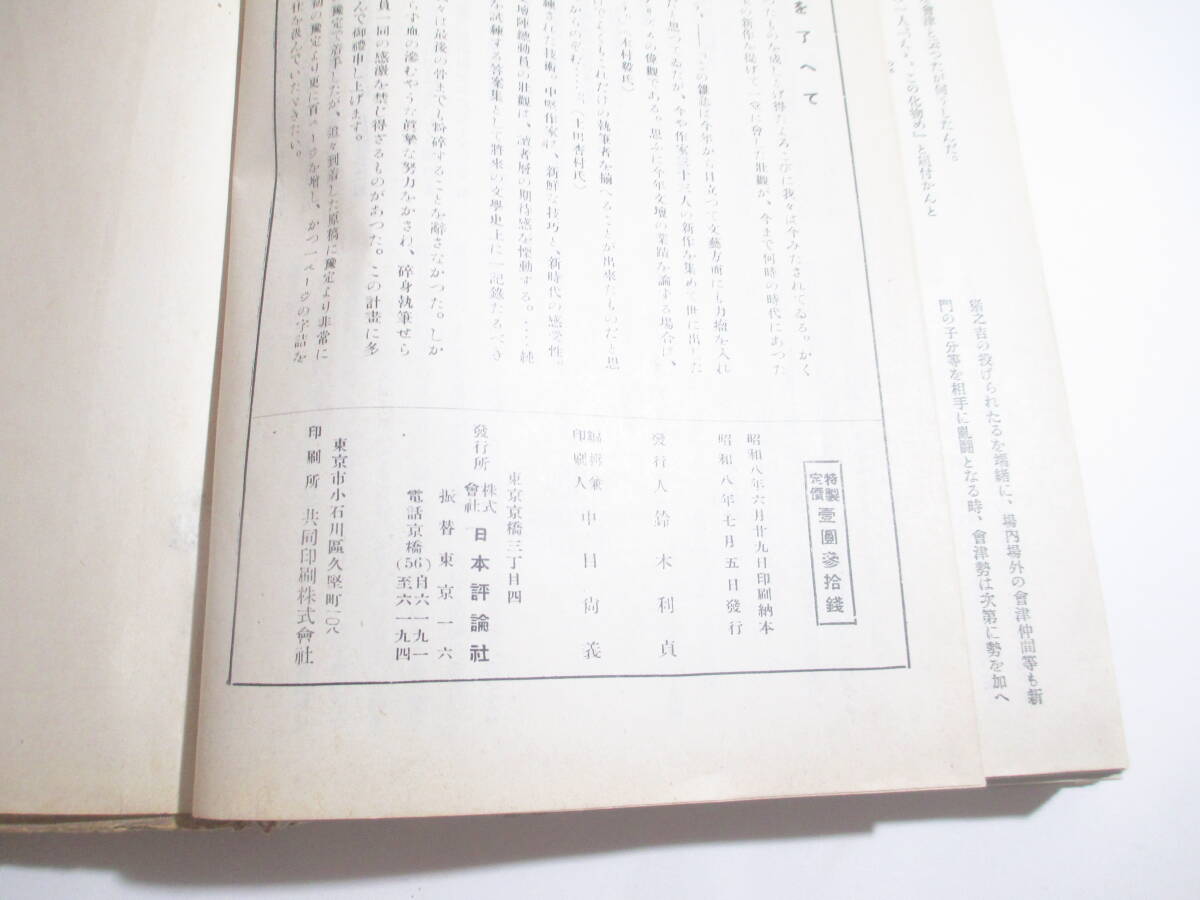 猪之吉の投げられたるを端緒に、場內場外の會津仲間等も新
門の子分等を相手に亂鬪となる時、會津勢は次第に勢を加へ
一人づつ、この化物め』と睨付かんと
を了へて
ったものを成しとげ得たよろこびに我々は今みたされてゐる。かく
の新作を提げて一堂に會した壯觀が、今まで何時の時代にあつた
の雜誌は今年から目立つて文藝方面にも力瘤を入れ
思つてゐたが、今や作家三十三人の新作を集めて世に出した
の偉觀である。思ふに今年文壇の業蹟を論ずる場合に、
(木村毅氏)
れだけの執筆者を揃へることが出來たものだと思
からの望む……」(土田杏村氏)
練された技術。中堅作家の、新鮮な技巧と、新時代の感受性。
壇陣總動員の壯觀は、讀者層の期待感を慫動する。……純
を試練する答案集として將來の文學史上に一記錄たるべき
々は最後の骨までも粉碎することを辭さなかつた。しか
らず血の滲むやうな眞摯な努力をかされ、碎身執筆せら
員一同の感激を禁じ得ざるものがあつた。この計畫に多
んで御禮申し上げます。
豫定で着手したが、追々到着した原稿に豫定より非常に
初の豫定より更に百ページを增し、かつ一ページの字詰を
仕を汲んでいただきたい。
特製
定價
壹圓參拾錢
昭和八年六月廿九日印刷納本
昭和八年七月五日發行
發行人 鈴木利貞
編輯兼
印刷人 中目尙義
東京京橋三丁目四
發行所 株式會社 日本評論社
振替東京一六
電話京橋(56)自六一九一至六一九四
東京市小石川區久堅町一〇八
印刷所 共同印刷株式會社